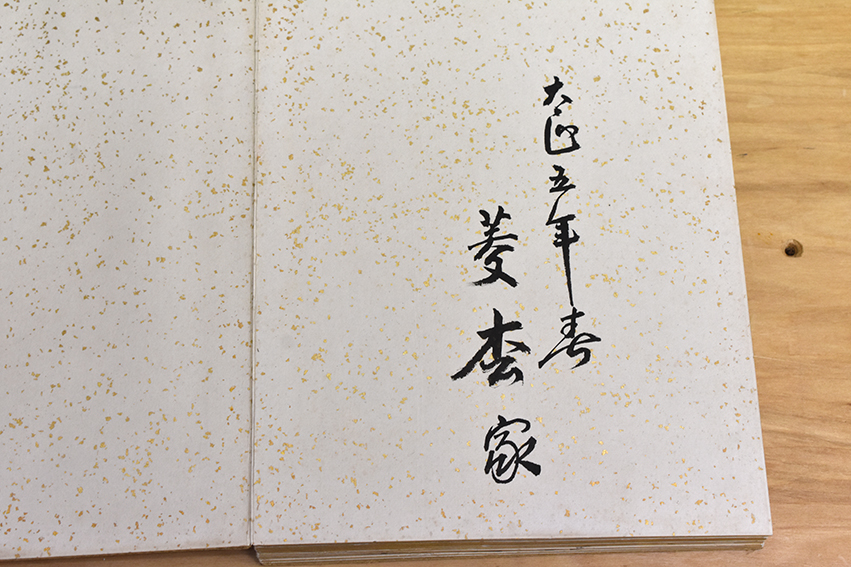 大正五年春
菱杏家